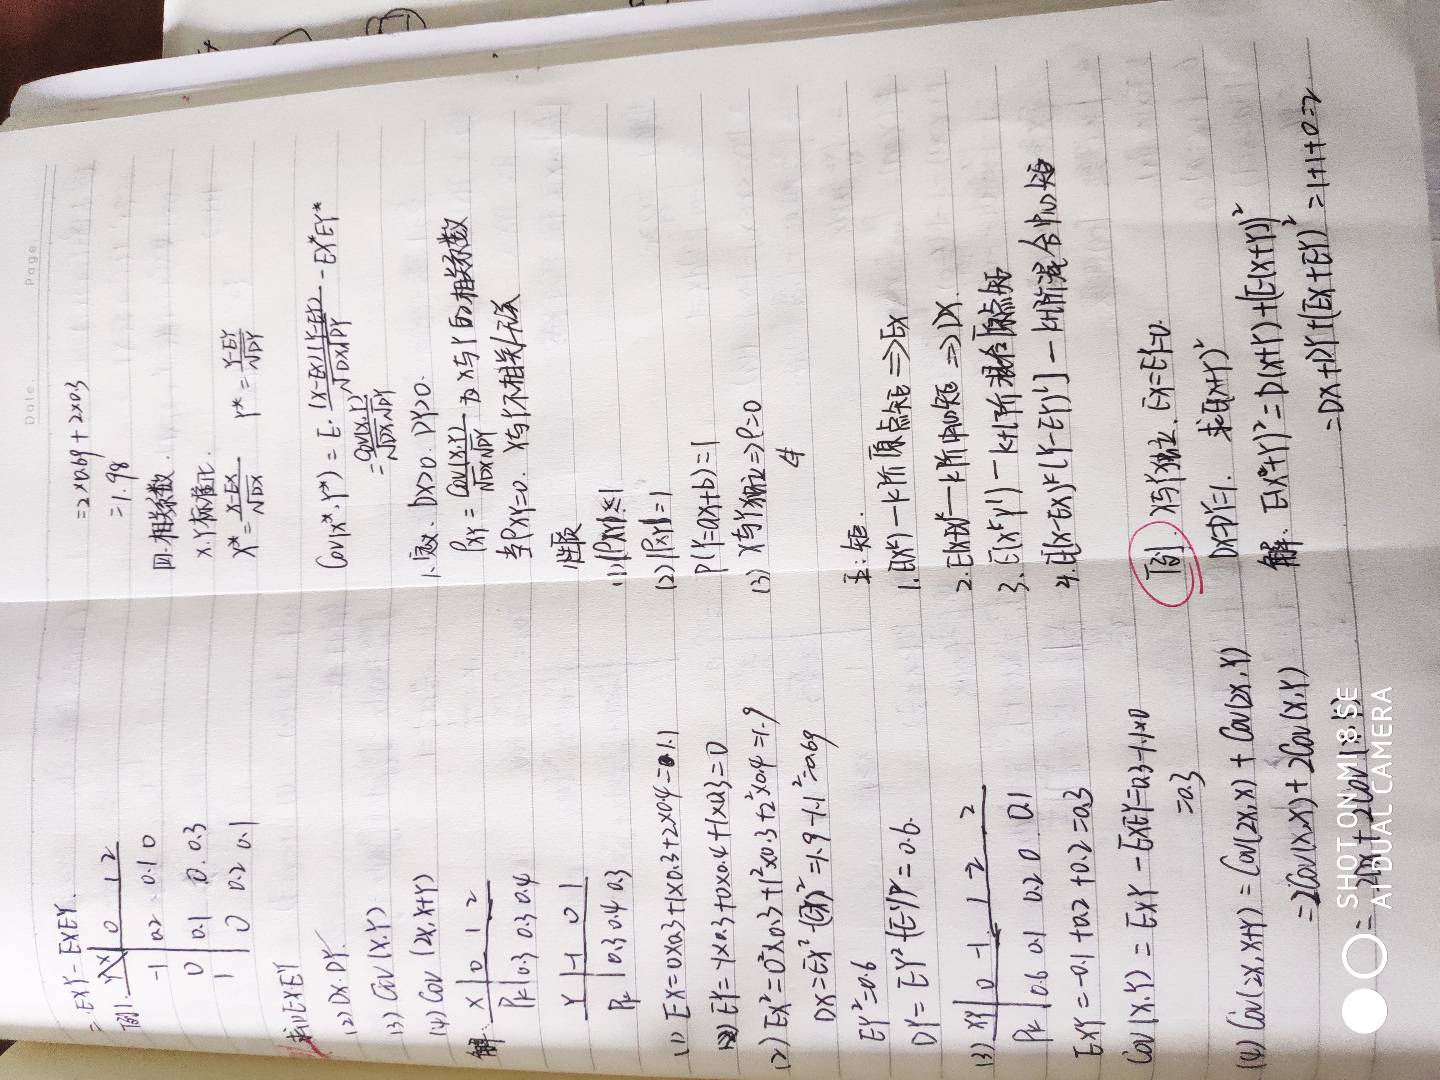 =EXY-EXEY.
例1. Y\X 0 1 2
-1 0.2 0.1 0
0 0.1 0. 0.3
1 0 0.2 0.1
求(1)EX.EY
(2) DX.DY.
(3) Cov(X.Y)
(4) Cov(2X, X+Y)
解: X 0 1 2
Pk 0.3 0.3 0.4
Y -1 0 1
Pk 0.3 0.4 0.3
(1) EX=0×0.3+1×0.3+2×0.4=1.1
EY=-1×0.3+0×0.4+1×0.3=0
(2) EX²=0²×0.3+1²×0.3+2²×0.4=1.9
DX=EX²-(EX)²=1.9-1.1²=0.69
EY²=0.6
DY=EY²-(EY)²=0.6.
(3) XY 0 -1 1 -2 2
Pk 0.6 0.1 0.2 0 0.1
EXY=-0.1+0.2+0.2=0.3
Cov(X.Y)=EXY-EXEY=0.3-1.1×0
=0.3
(4) Cov(2X, X+Y)=Cov(2X,X)+Cov(2X,Y)
=2Cov(X,X)+2Cov(X,Y)
=2DX+2Cov(X.Y)
SHOT ON MI 8 SE
AI DUAL CAMERA
Date. Page.
=2×0.69+2×0.3
=1.98
四.相关系数.
X.Y标准化.
X*=(X-EX)/√DX Y*=(Y-EY)/√DY
Cov(X*.Y*)=E·(X-EX)(Y-EY)/√DX√DY-EX*EY*
=Cov(X.Y)/√DX√DY
1.定义. DX>0. DY>0.
ρXY=Cov(X.Y)/√DX√DY 为X与Y的相关系数
当ρXY=0. X与Y不相关/无关
性质
(1)|ρXY|≤1
(2)|ρXY|=1
P(Y=aX+b)=1
(3) X与Y独立⇒ρ=0
⇍
五:矩.
1.E(X^k)—k阶原点矩⇒EX
2.E(X-EX)^k—k阶中心矩⇒DX.
3.E(X^k Y^l)—k+l阶混合原点矩
4.E[(X-EX)^k(Y-EY)^l]—k+l阶混合中心矩
例. X与Y独立. EX=EY=0.
DX=DY=1. 求E(X+Y)²
解. E(X+Y)²=D(X+Y)+(E(X+Y))²
=DX+DY+(EX+EY)²=1+1+0=2